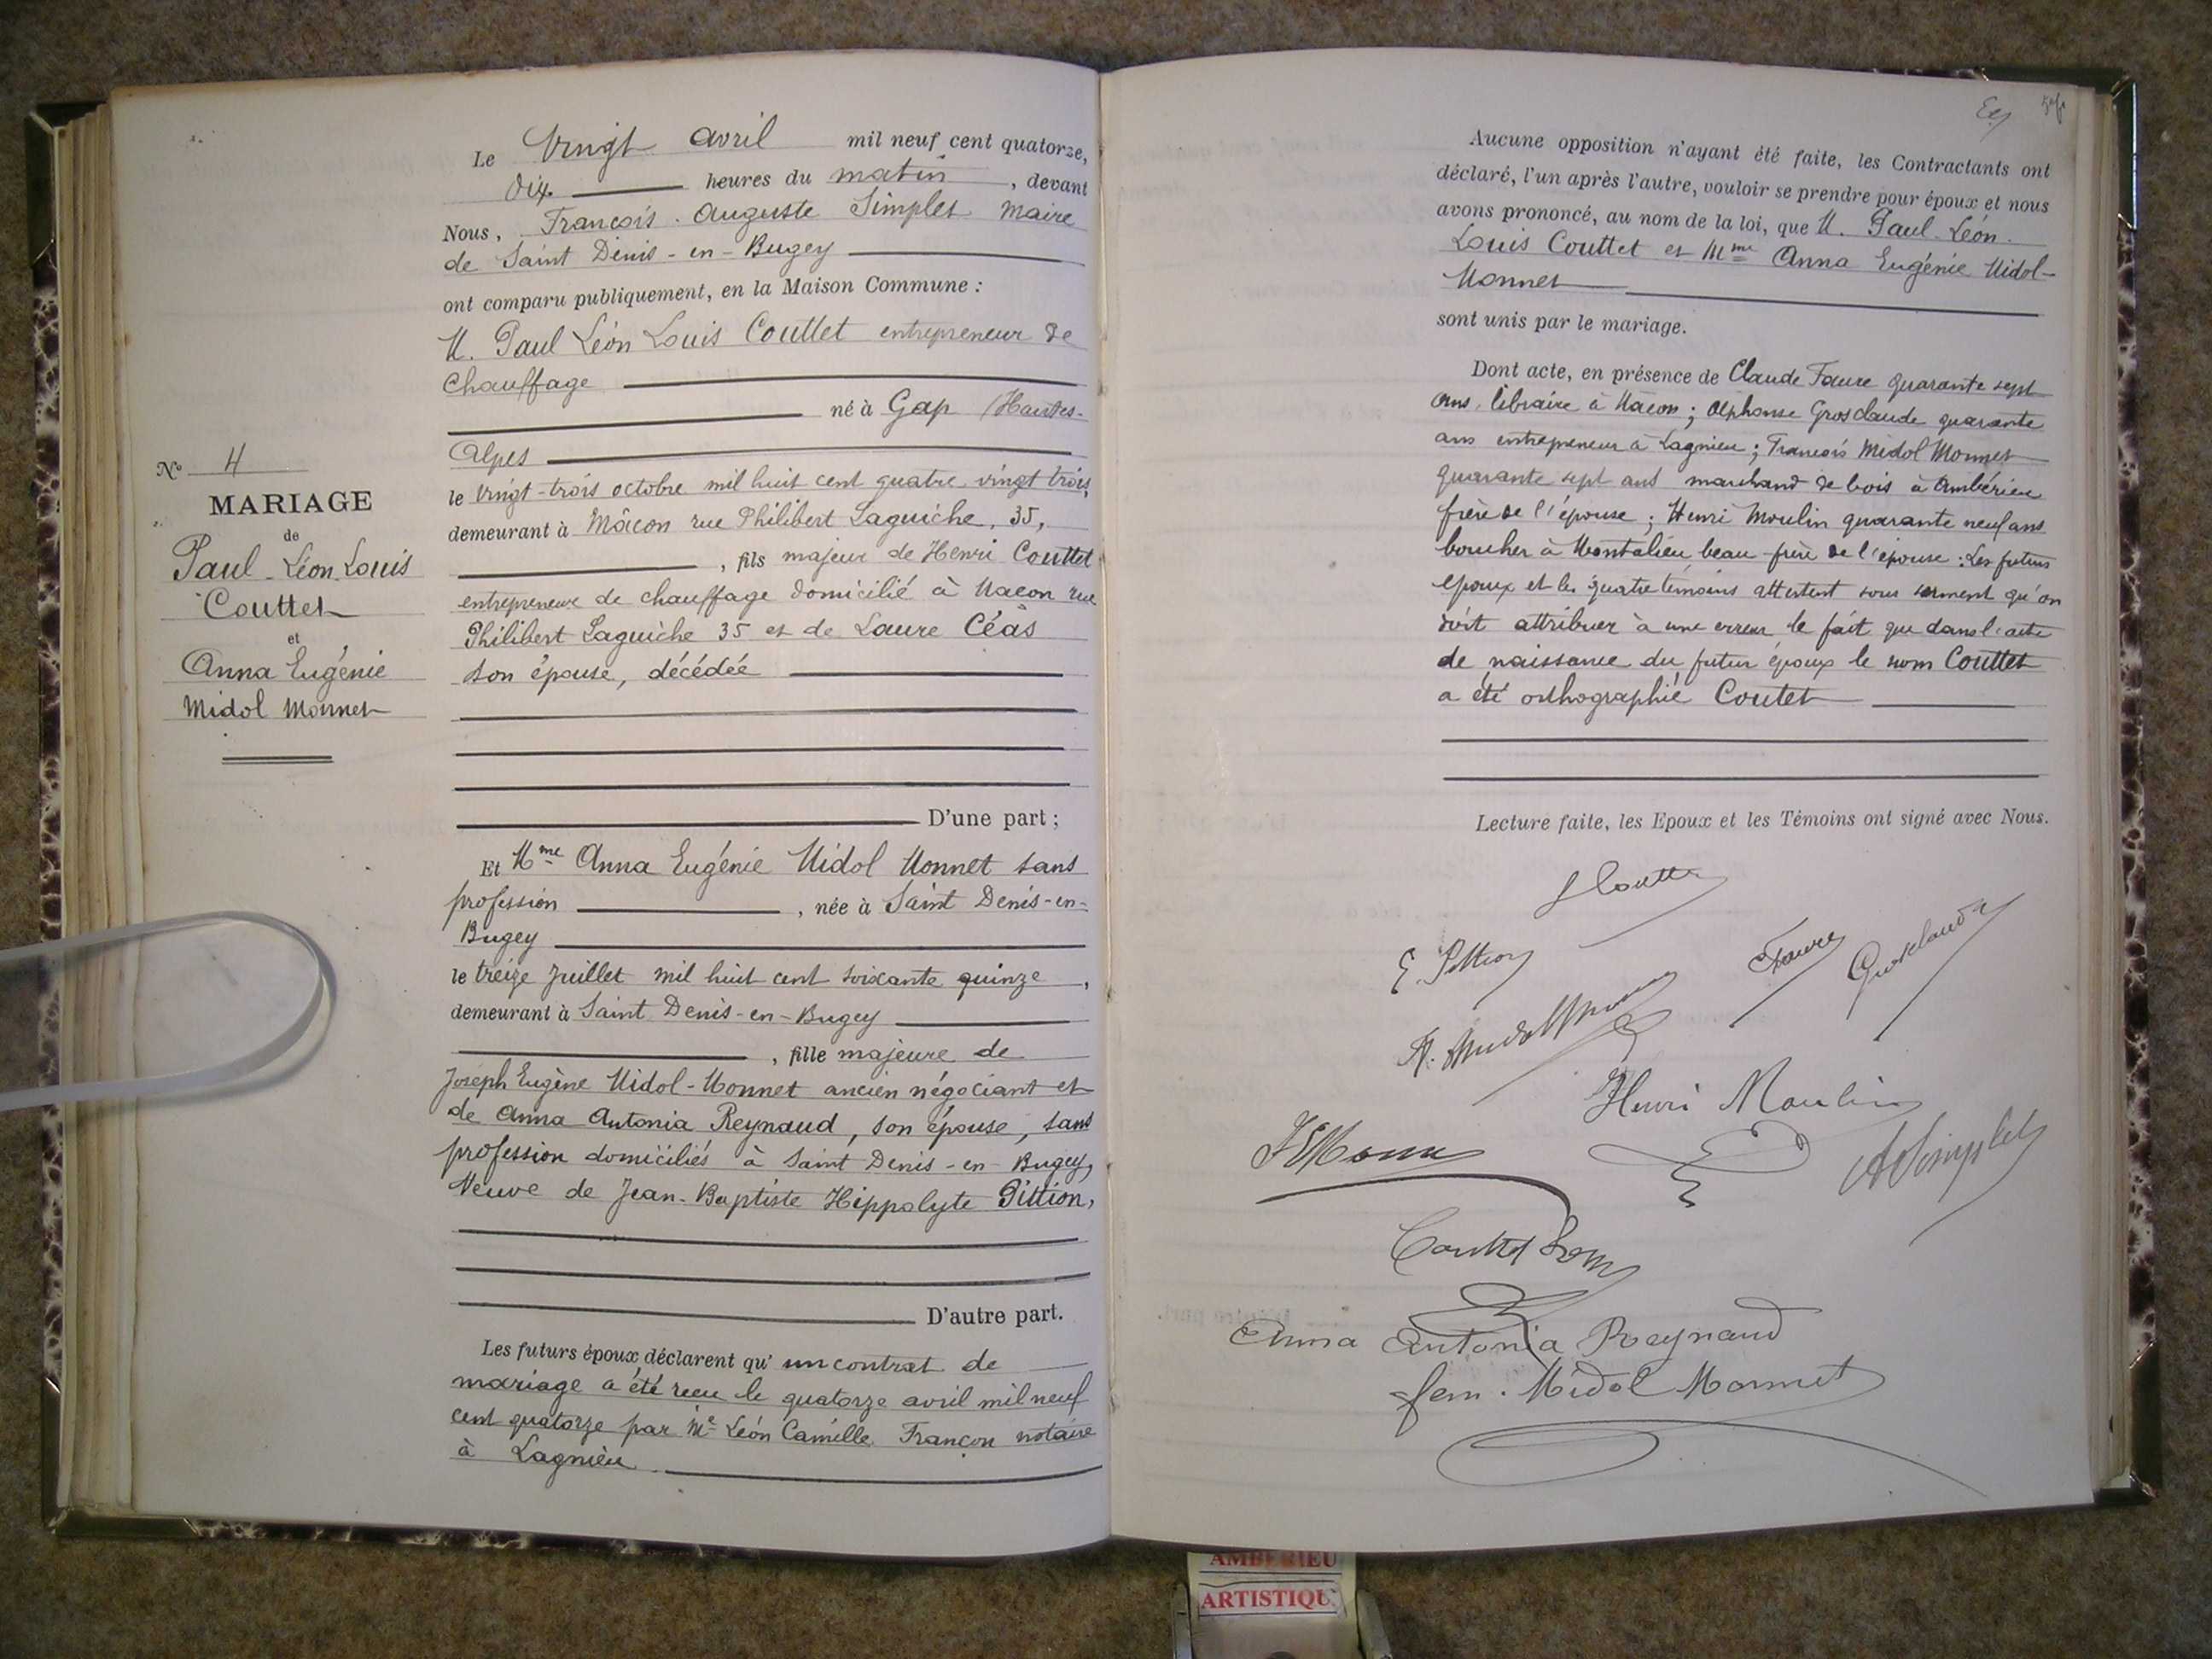 N° 4
MARIAGE
de
Paul-Léon Louis
Couttet
et
Anna Eugénie
Midol Monnet
Le Vingt avril mil neuf cent quatorze,
dix heures du matin, devant
Nous, François-Auguste Simplet Maire
de Saint Denis-en-Bugey
ont comparu publiquement, en la Maison Commune :
M. Paul Léon Louis Couttet entrepreneur de
Chauffage
né à Gap (Hautes-
Alpes
le vingt-trois octobre mil huit cent quatre vingt trois,
demeurant à Mâcon rue Philibert Laguiche, 35,
, fils majeur de Henri Couttet
entrepreneur de chauffage domicilié à Macon rue
Philibert Laguiche 35 et de Laure Céas
son épouse, décédée
D'une part ;
Et Mme Anna Eugénie Midol Monnet sans
profession, née à Saint Denis-en-
Bugey
le treize Juillet mil huit cent soixante quinze,
demeurant à Saint Denis-en-Bugey
, fille majeure de
Joseph Eugène Midol-Monnet ancien négociant et
de Anna Antonia Reynaud, son épouse, sans
profession domiciliés à Saint Denis-en-Bugey,
Veuve de Jean-Baptiste Hippolyte Pittion,
D'autre part.
Les futurs époux déclarent qu'un contrat de
mariage a été reçu le quatorze avril mil neuf
cent quatorze par Me Léon Camille Françon notaire
à Lagnieu
Aucune opposition n'ayant été faite, les Contractants ont
déclaré, l'un après l'autre, vouloir se prendre pour époux et nous
avons prononcé, au nom de la loi, que M. Paul-Léon-
Louis Couttet et Mme Anna Eugénie Midol-
Monnet
sont unis par le mariage.
Dont acte, en présence de Claude Faure quarante sept
ans, libraire à Mâcon ; Alphonse Grosclaude quarante
ans entrepreneur à Lagnieu ; François Midol Monnet
quarante sept ans marchand de bois à Ambérieu
frère de l'épouse ; Henri Moulin quarante neuf ans
boucher à Montalieu beau-frère de l'épouse. Les futurs
époux et les quatre témoins attestent sous serment qu'on
doit attribuer à une erreur le fait que dans l'acte
de naissance du futur époux le nom Couttet
a été orthographié Coutet
Lecture faite, les Epoux et les Témoins ont signé avec Nous.
E. Pittion
Faure
Grosclaude
Henri Moulin
A Simplet
Couttet
Anna Antonia Reynaud
fem. Midol Monnet
AMBERIEU
ARTISTIQU